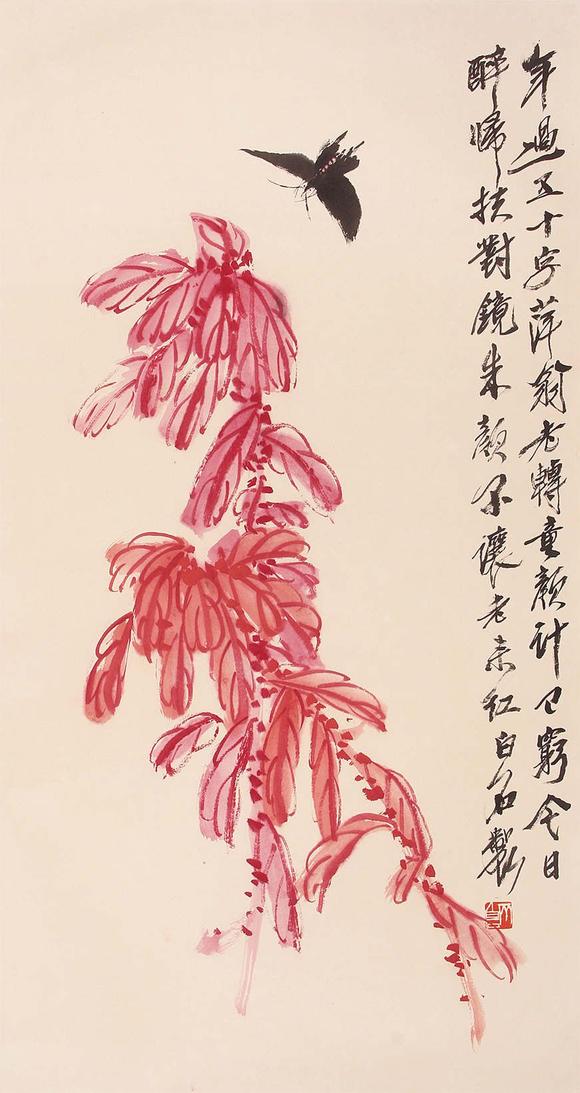 年過五十字萍翁老轉童顏計已窮今日
醉歸扶對鏡朱顏不讓老来紅白石製